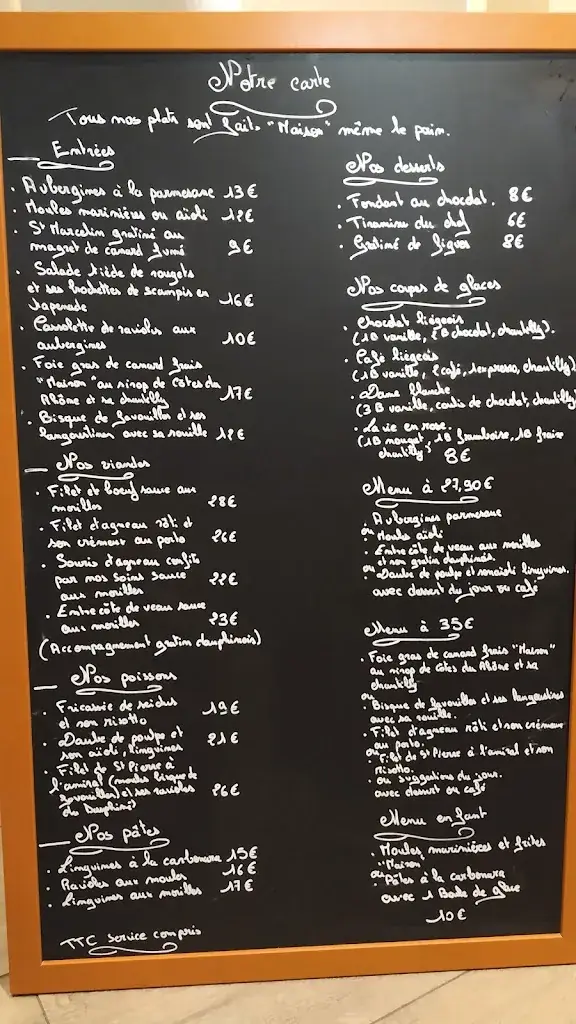 Notre carte
Tous nos plats sont faits "Maison" même le pain.
Entrées
. Aubergines à la parmesane 13€
. Moules marinières ou aïoli 12€
. St Marcelin gratiné au
magret de canard fumé 9€
. Salade tiède de rougets
et ses brochettes de scampis en
tapenade 16€
. Cassolette de ravioles aux
aubergines 10€
. Foie gras de canard frais
"Maison" au sirop de Côtes du
Rhône et sa chantilly 17€
. Bisque de favouilles et ses
langoustines avec sa rouille 12€
Nos viandes
. Filet de boeuf sauce aux
morilles 28€
. Filet d'agneau rôti et
son crémeux au porto 26€
. Souris d'agneau confite
par nos soins sauce
aux morilles 22€
. Entrecôte de veau sauce
aux morilles 23€
(Accompagnement gratin dauphinois)
Nos poissons
. Fricassée de seiches
et son risotto 19€
. Daube de poulpe et
son aïoli, linguines 21€
. Filet de St Pierre à
l'amiral (moules bisque de
favouilles) et ses ravioles
du Dauphiné 26€
Nos pâtes
. Linguines à la carbonara 15€
. Ravioles aux moules 16€
. Linguines aux morilles 17€
TTC Service compris
Nos desserts
. Fondant au chocolat. 8€
. Tiramisu du chef 6€
. Gratiné de figues 8€
Nos coupes de glaces
. Chocolat liégeois
(1B vanille, 2B chocolat, chantilly).
. Café liégeois
(1B vanille, 2 café, 1 expresso, chantilly)
. Dame blanche
(3B vanille, coulis de chocolat, chantilly)
. La vie en rose.
(1B nougat, 1B framboise, 1B fraise
chantilly) 8€
Menu à 27,90€
. Aubergines parmesane
ou
. Moules aïoli
. Entrecôte de veau aux morilles
et son gratin dauphinois
ou
. Daube de poulpe et son aïoli linguines.
avec dessert du jour ou café
Menu à 35€
. Foie gras de canard frais "Maison"
au sirop de Côtes du Rhône et sa
chantilly
ou
. Bisque de favouilles et ses langoustines
avec sa rouille.
. Filet d'agneau rôti et son crémeux
au porto.
ou
. Filet de St Pierre à l'amiral et son
risotto.
ou suggestions du jour.
avec dessert ou café
Menu enfant
. Moules marinières et frites
"Maison"
ou
. Pâtes à la carbonara
avec 1 Boule de glace
10€